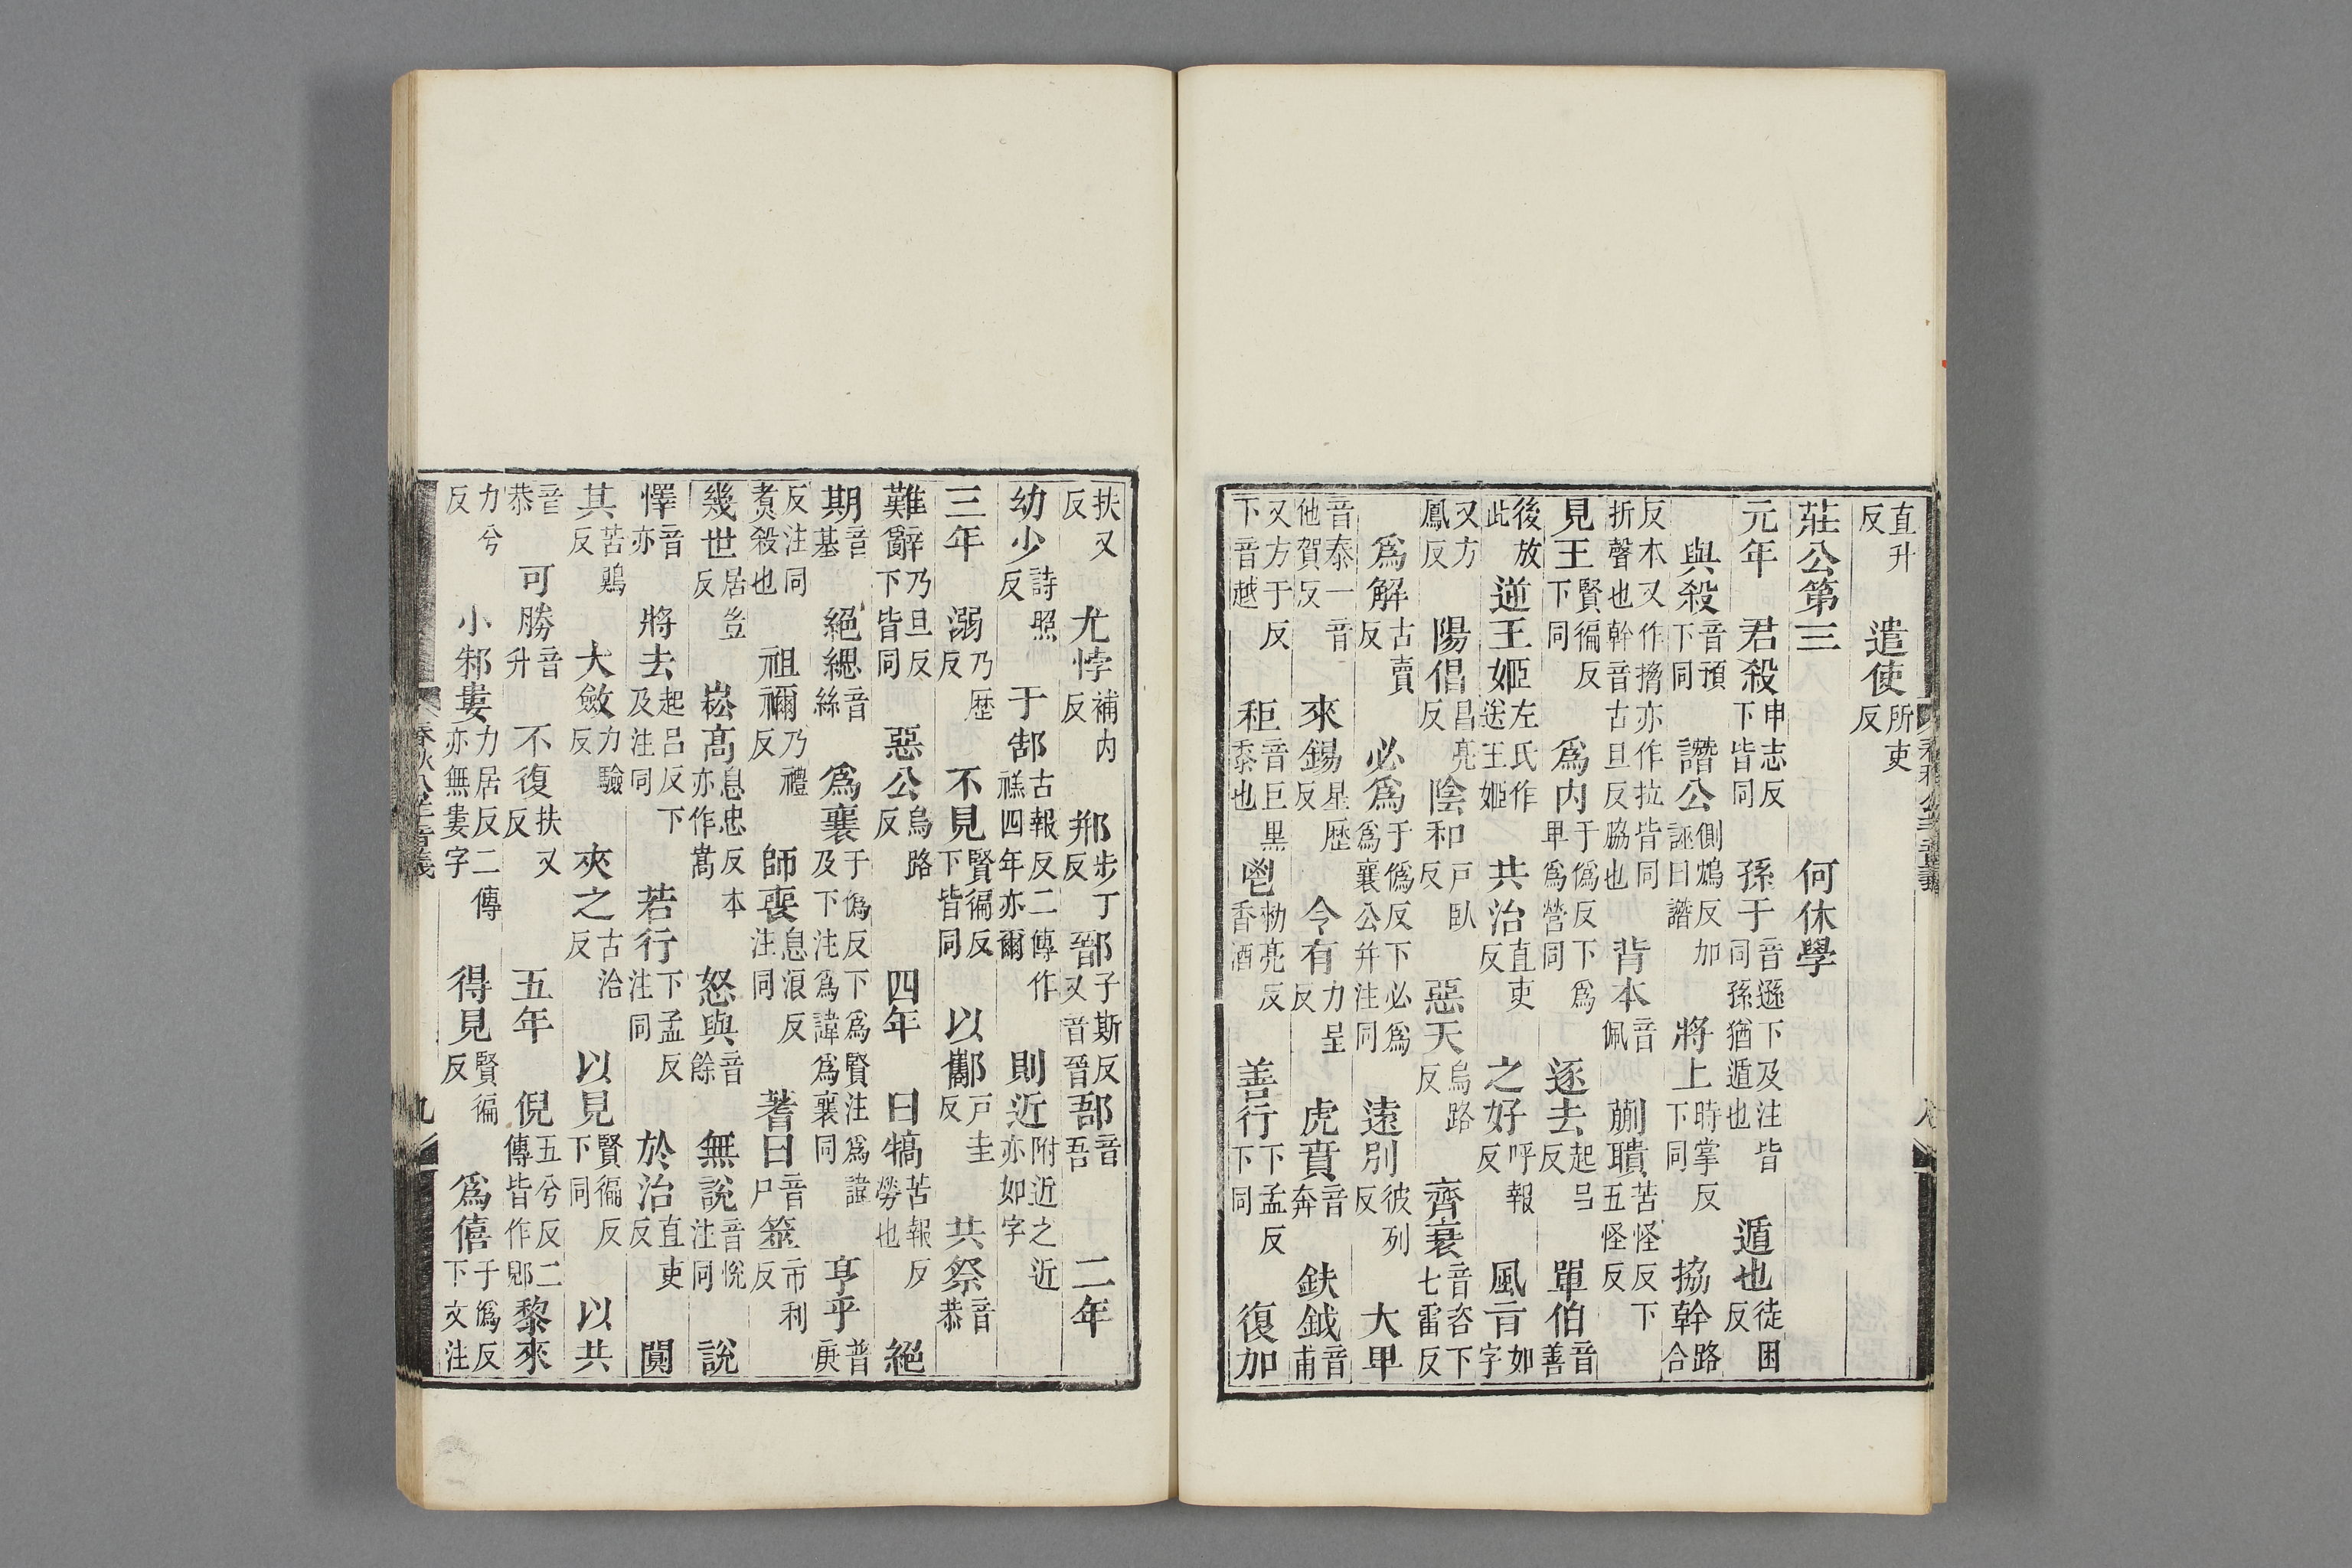 直升反 遣使所吏反
莊公第三 何休學
元年 君殺申志反下皆同 孫于音遜下及注皆同孫猶遁也 遁也徒困反
與殺音預下同 譖公側鴆反加誣曰譖 將上時掌反下同 搚幹路合
反木又作搚亦作拉皆同折聲也幹音古旦反脇也 背本音佩 蒯聵苦怪反下五怪反
見王賢徧反下同 爲内于僞反下爲單爲營同 逐去起吕反 單伯音善
後放此 逆王姬左氏作送王姬 共治直吏反 之好呼報反 風言如字
又方鳳反 陽倡昌亮反 陰和戶臥反 惡天烏路反 齊衰音咨下七雷反
爲解古賣反 必爲于僞反下必爲爲襄公幷注同 遠別彼列反 大甲
音泰一音他賀反 來錫星歷反 令有力呈反 虎賁音奔 鈇鉞音甫
又方于反下音越 秬音巨黑黍也 鬯勑亮反香酒 善行下孟反下同 復加
扶又反 尤悖補内反 郱步丁反 鄑子斯反又音晉 郚音吾 二年
幼少詩照反 于郜古報反二傳作禚四年亦爾 則近附近之近亦如字
三年 溺乃歷反 不見賢徧反下皆同 以酅戶圭反 共祭音恭
難辭乃旦反下皆同 惡公烏路反 四年 曰犒苦報反勞也 絕
期音基 絕緦音絲 爲襄于僞反下爲賢注爲諱及下注爲諱爲襄同 亨乎普庚
反注同煑殺也 祖禰乃禮反 師喪息浪反注同 蓍曰音尸 筮市利反
幾世居豈反 崧高息忠反本亦作嵩 怒與音餘 無說音悅注同 說
懌音亦 將去起吕反下及注同 若行下孟反注同 於治直吏反 闃
其苦鵙反 大斂力驗反 夾之古洽反 以見賢徧反下同 以共
音恭 可勝音升 不復扶又反 五年 倪五兮反二傳皆作郳 黎來
力兮反 小邾婁力居反二傳亦無婁字 得見賢徧反 爲僖于僞反下文注
春秋公羊音義 九